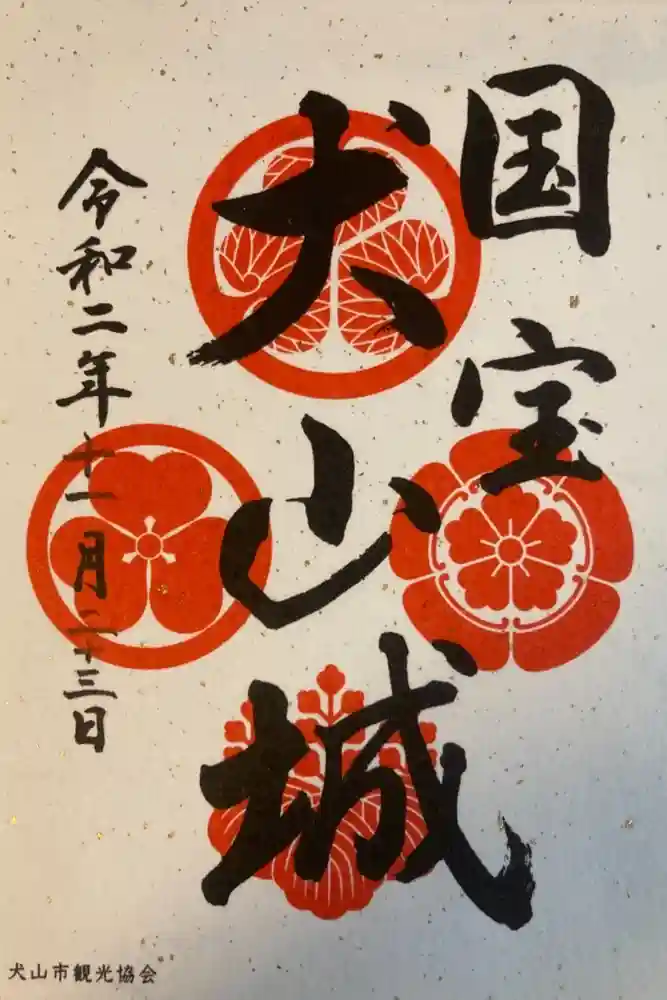 国宝
犬山城
令和二年十一月二十三日
犬山市観光協会